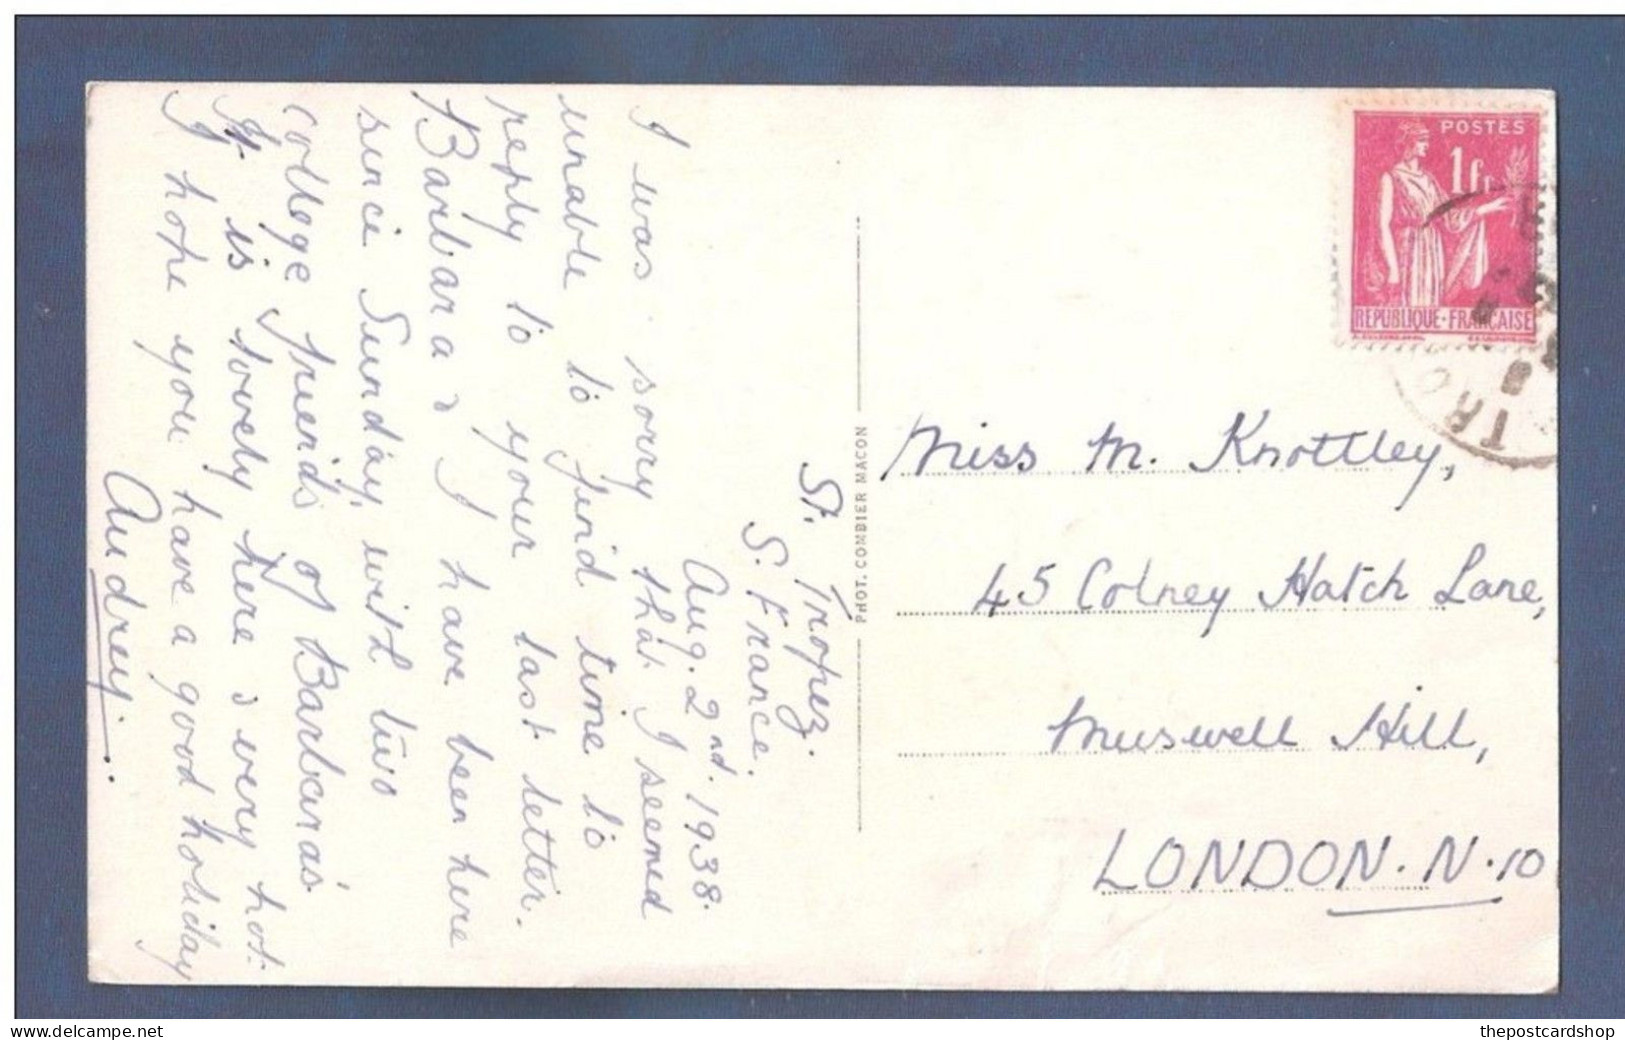 St. Tropez.
S. France.
Aug. 2nd. 1938.
I was sorry that I seemed
unable to find time to
reply to your last letter.
Barbara & I have been here
since Sunday, with two
college friends of Barbara's
It is lovely here & very hot.
I hope you have a good holiday
Audrey.
PHOT. COMBIER MACON
POSTES
1fr
REPUBLIQUE·FRANÇAISE
Miss M. Knottley,
45 Colney Hatch Lane,
Muswell Hill,
LONDON. N.10
delcampe.net
thepostcardshop